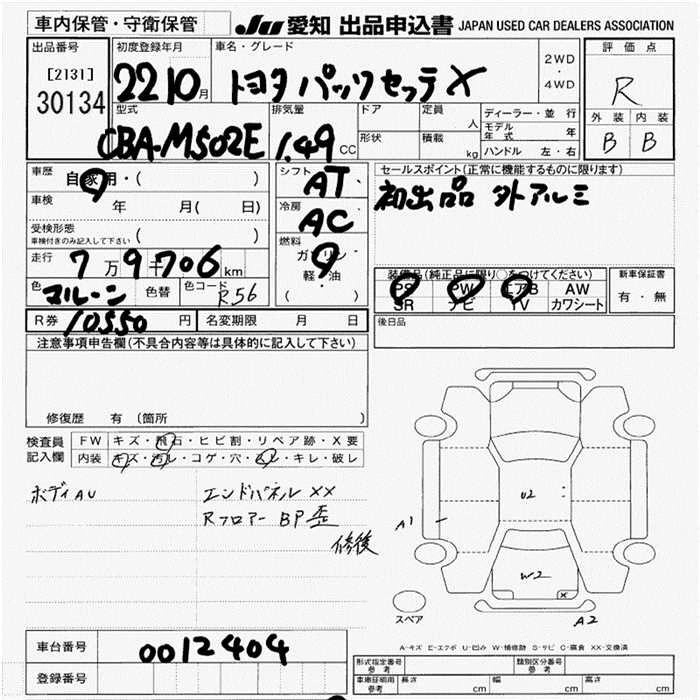 車内保管・守衛保管
JU 愛知 出品申込書 JAPAN USED CAR DEALERS ASSOCIATION
出品番号
[2131]
30134
初度登録年月
22 10月
車名・グレード
トヨタ パッソセッテ X
2WD
・
4WD
評価点
R
外装 内装
B B
型式
CBA-M502E
排気量
1.49 CC
ドア
形状
定員 人
積載 kg
ディーラー・並行
モデル年式 年
ハンドル 左・右
車歴 自家用・( )
車検 年 月( 日)
受検形態 ( )
車検付きのみ記入して下さい
走行 7万9千706km
色 マルーン 色替 色コード R56
シフト AT
冷房 AC
燃料
ガソリン
軽油
( )
セールスポイント(正常に機能するものに限ります)
初出品 外アルミ
装備品(純正品に限り○をつけてください)
PS PW エアB AW
SR ナビ TV カワシート
新車保証書
有・無
R券 10550円 名変期限 月 日
後日品
注意事項申告欄(不具合内容等は具体的に記入して下さい)
修復歴 有 (箇所 )
検査員記入欄
FW キズ・飛石・ヒビ割・リペア跡・X要
内装 キズ・汚レ・コゲ・穴・ムレ・キレ・破レ
ボディ AU
エンドパネル XX
Rフロアー BP歪
修後
U2
A1
W2
X
A2
スペア
A-キズ E-エクボ U-凹み W-補修跡 S-サビ C-腐食 XX-交換済
車台番号 0012404
登録番号
形式指定番号 参考
類別区分番号 参考
車庫証明用 参考 長さ cm 幅 cm 高さ cm